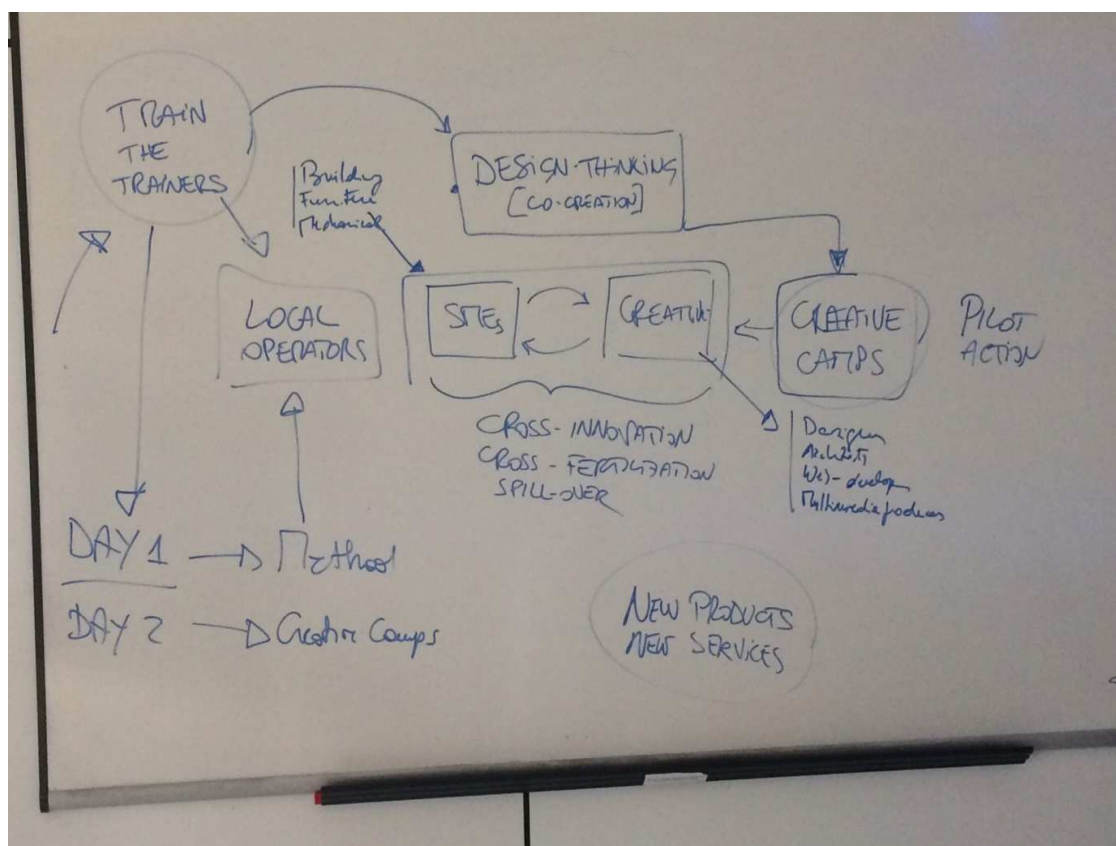 TRAIN
THE
TRAINERS
DESIGN-THINKING
[CO-CREATION]
Building
Mechanical
LOCAL
OPERATORS
SMEs
CREATIVE
CREATIVE
CAMPS
PILOT
ACTION
CROSS-INNOVATION
CROSS-FERTILIZATION
SPILL-OVER
Designers
Architects
Web-develop
Multimedia producers
DAY 1
Method
DAY 2
Creative Camps
NEW PRODUCTS
NEW SERVICES